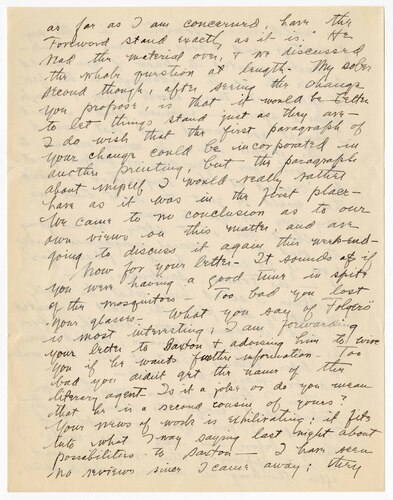 as far as I am concerned, have the
Foreword stand exactly as it is." He
read the material over, & we discussed
the whole question at length. My sober
second thought, after seeing the change
you propose, is that it would be better
to let things stand just as they are —
I do wish that the first paragraph of
your change could be incorporated in
another printing, but the paragraph
about myself I would really rather
have as it was in the first place —
We came to no conclusion as to our
own views on this matter, and are
going to discuss it again this weekend —
Now for your letter — It sounds as if
you were having a good time in spite
of the mosquitoes — Too bad you lost
your glasses — What you say of
is most interesting; I am forwarding
your letter to Saxton & advising him to wire
you if he wants further information. Too
bad you didn't get the name of the
literary agent. Is it a joke or do you mean
that he is a second cousin of yours?
Your news of work is exhilirating; it fits
into what I was saying last night about
possibilities to Saxton — I have seen
no reviews since I came away; they